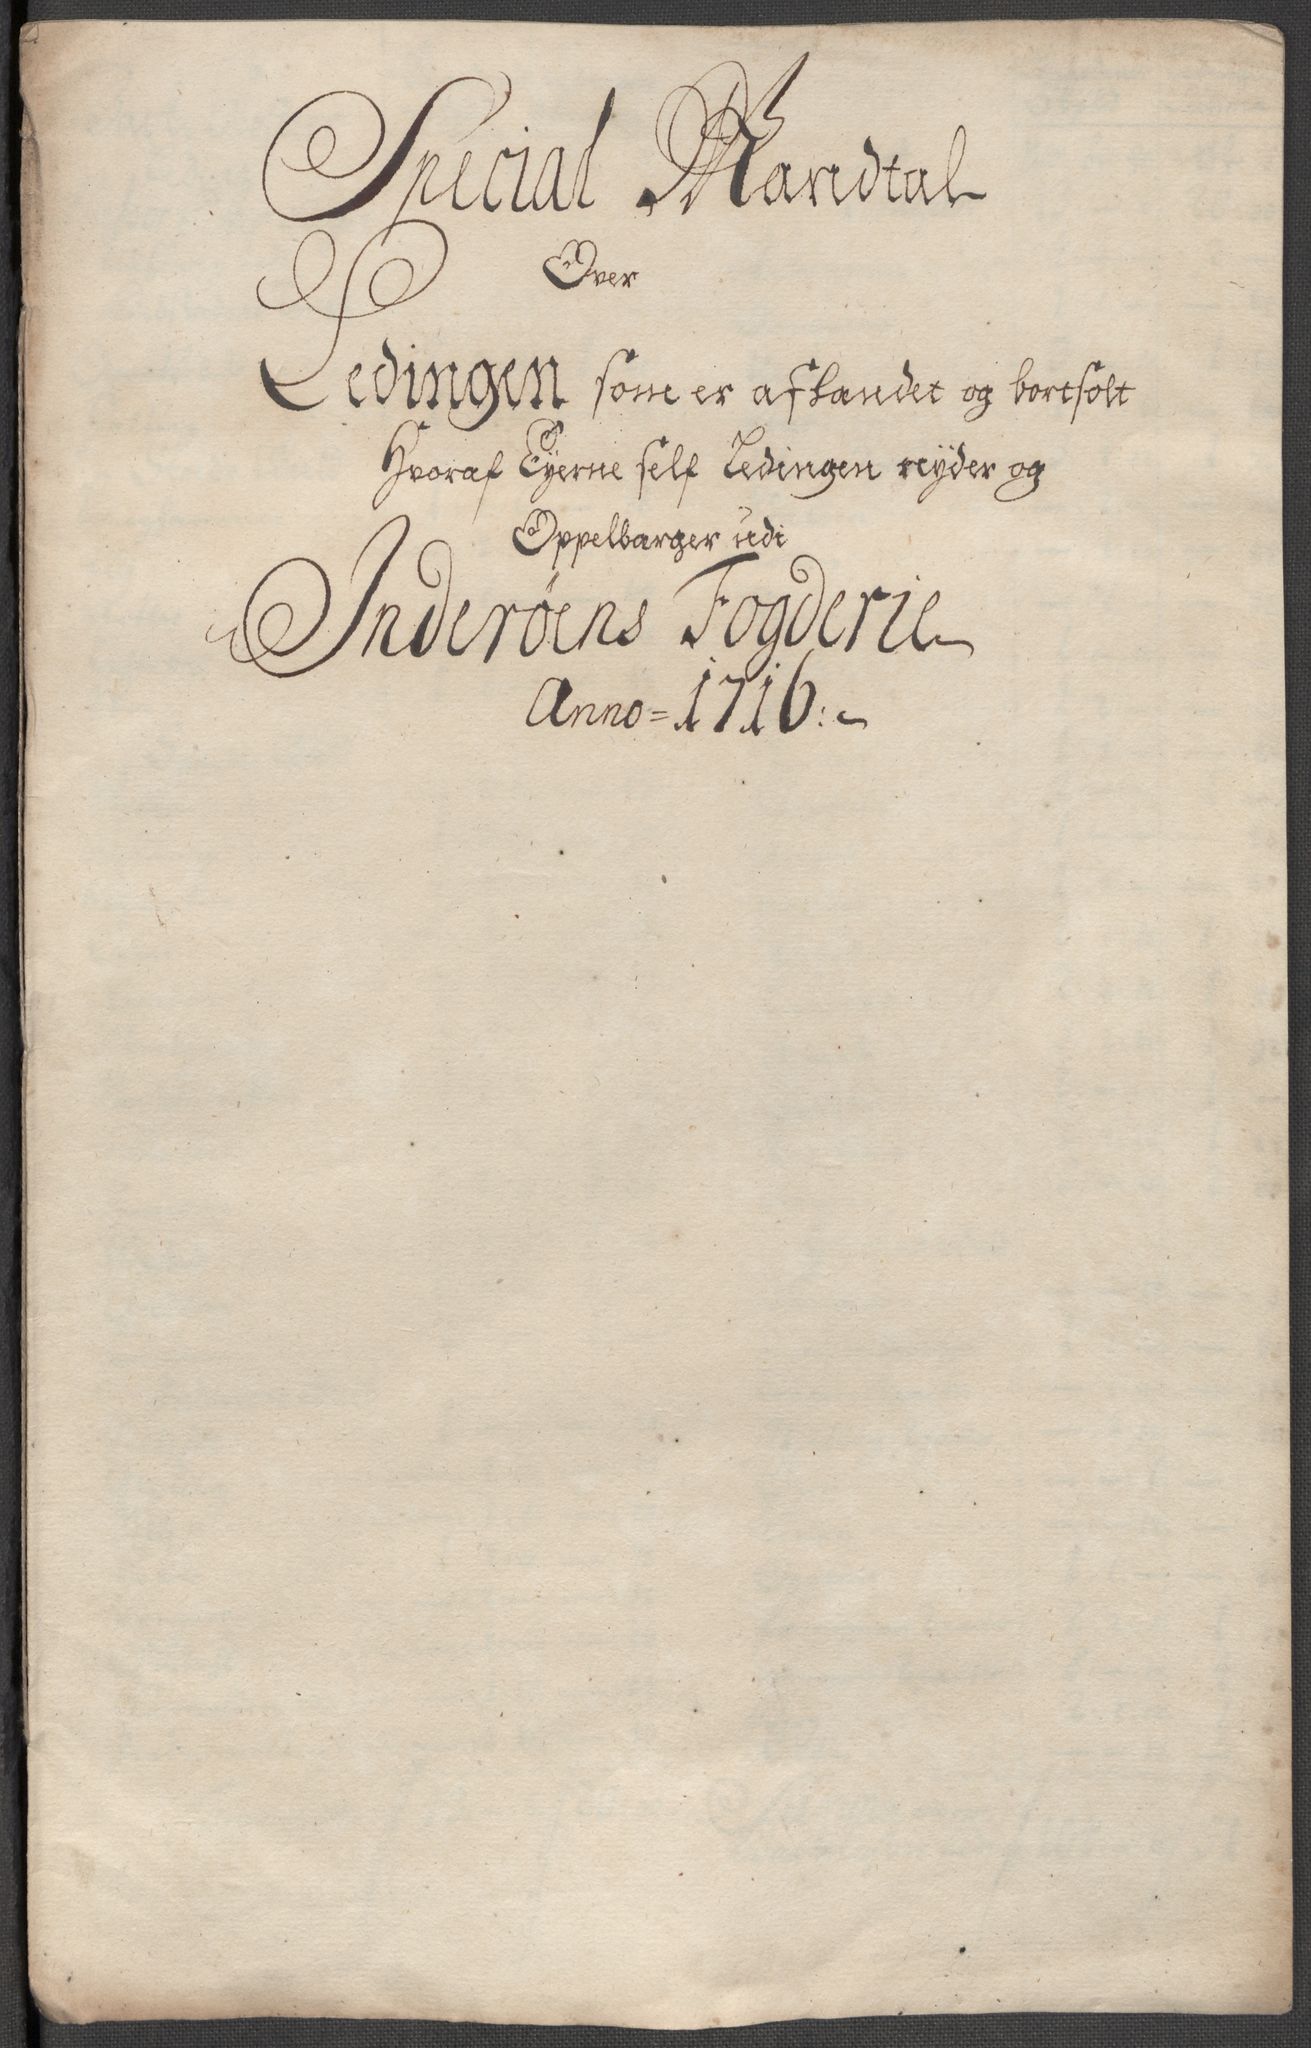 Special Mandtal
Over
Ledingen som er afhandet og bortsolt
Hvoraf Eyerne self Ledingen nyder og
Oppelbarger udi
Inderøens Fogderie
Anno = 1716: